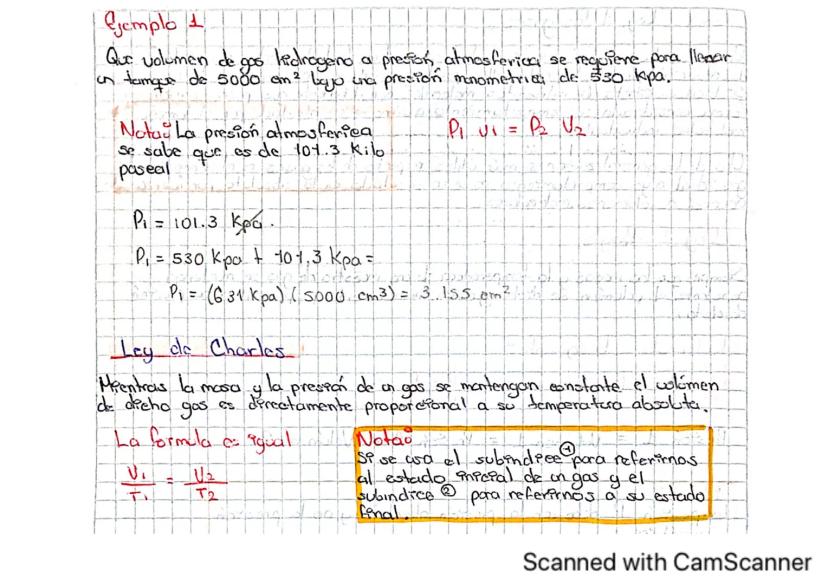 Ejemplo 1
Que volumen de gas hidrogeno a presión atmosferica se requiere para llenar
un tanque de 5000 cm² bajo una presión manometrica de 530 Kpa.
Nota: La presión, atmosferica
se sabe que es de 101.3 Kilo
pascal
P₁ V₁ = P₂ V₂
P₁ = 101.3 Kpa.
P₁ = 530 Kpa + 101,3 Kpa =
P₁ = (631 Kpa) (5000 cm3) = 3.155 cm²
Ley de Charles
Mientras la masa y la presión de un gas se mantengan constante el volúmen
de dicho gas es directamente proporcional a su temperatura absoluta.
La formula es igual
V₁/T₁ = V₂/T₂
Nota:
Si se usa el subindice ① para referirnos
al estado inicial de un gas y el
subindice ② para referirnos a su estado
final.
Scanned with CamScanner